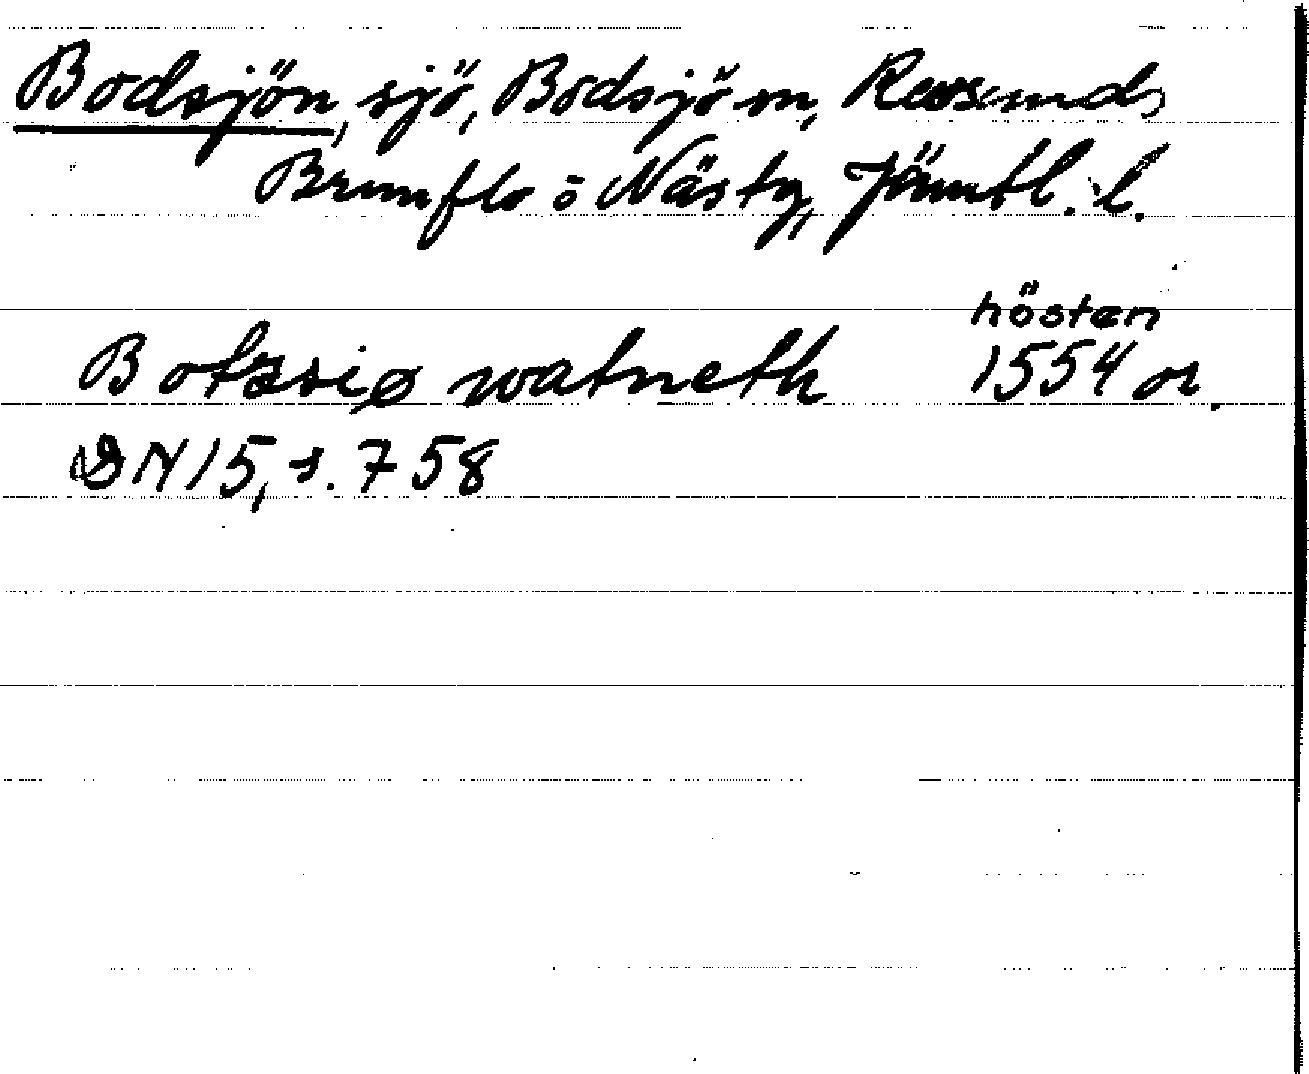 Bodsjön, sjö, Bodsjö sn, Revsunds,
Brunflo o Näs tg, Jämtl. l.
hösten
Botzsiø watneth 1554 or.
DN 15, s. 758